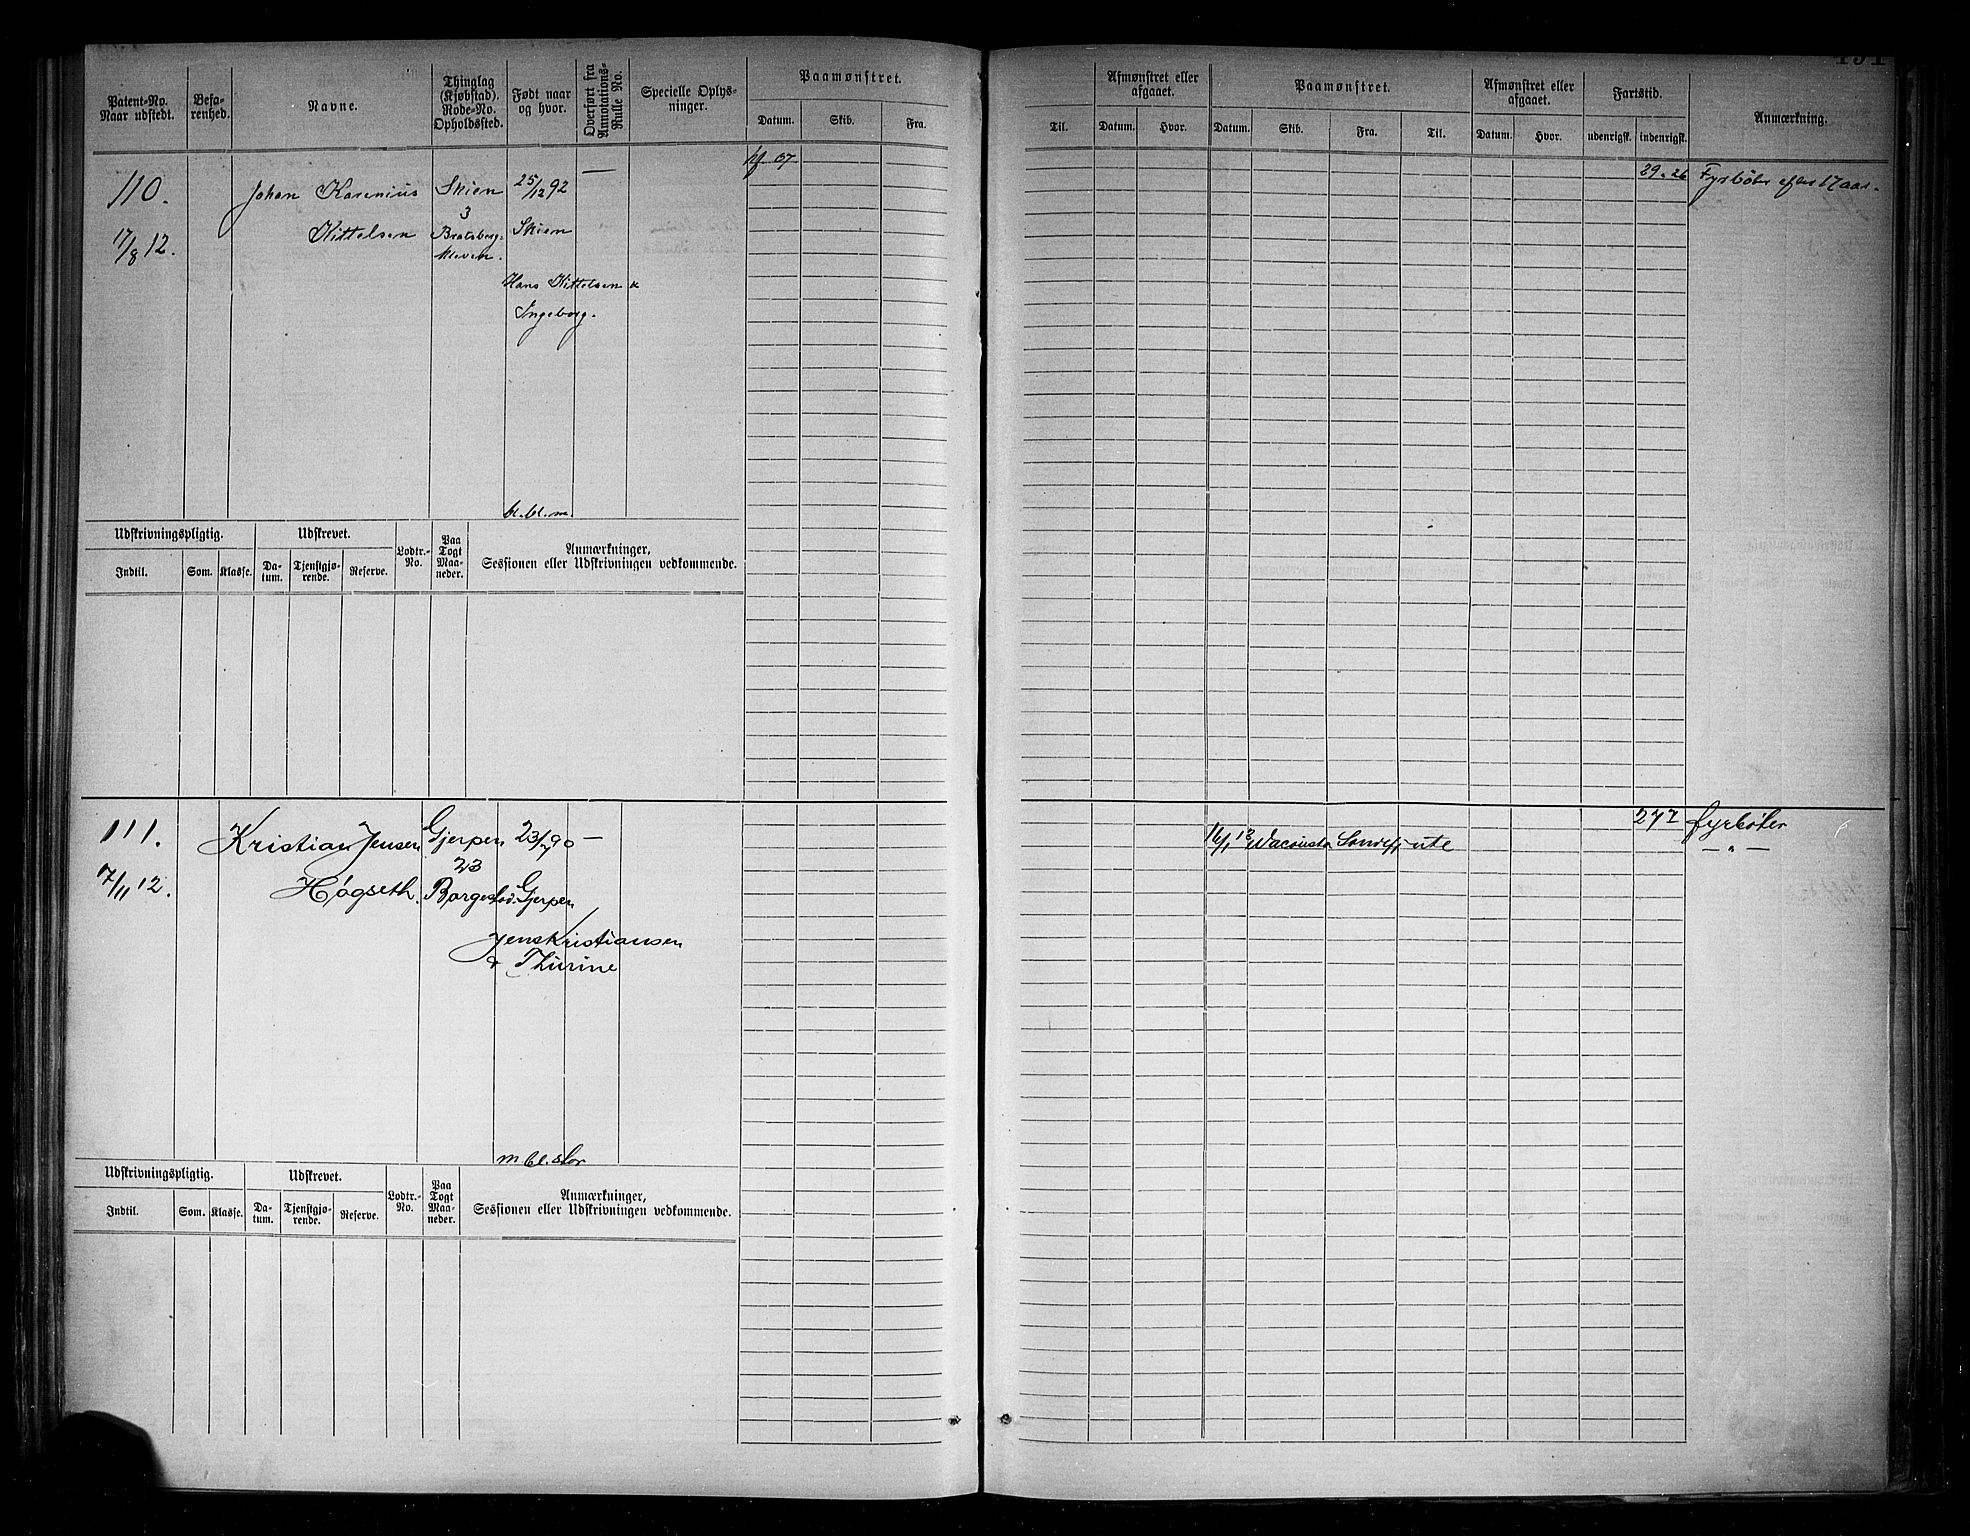 Patent-No. Naar udstedt.
Befarenhed.
Navne.
Thinglag (Kjøbstad). Rode-No. Opholdssted.
Født naar og hvor.
Overført fra Annotations-Rulle No.
Specielle Oplysninger.
Paamønstret.
Datum. Skib. Fra.
110.
Johan Karenius
Skien
25/12 92
—
17/8 12.
Kittelsen
3
Bratsberg-
kleven.
Skien
Hans Kittelsen &
Ingeborg.
07
bl. bl. m.
Udskrivningspligtig.
Udskrevet.
Lodtr.-No.
Paa Togt Maaneder.
Anmærkninger,
Sessionen eller Udskrivningen vedkommende.
Indtil. Som. Klasse. Datum. Tjenstgjørende. Reserve.
111.
Kristian Jensen
Gjerpen
23/7 90
—
7/11 12.
Høgseth.
23
Borgestad.
Gjerpen
Jens Kristiansen
& Thurine
m. bl. stor
Udskrivningspligtig.
Udskrevet.
Lodtr.-No.
Paa Togt Maaneder.
Anmærkninger,
Sessionen eller Udskrivningen vedkommende.
Indtil. Som. Klasse. Datum. Tjenstgjørende. Reserve.
Til.
Afmønstret eller afgaaet.
Datum. Hvor.
Paamønstret.
Datum. Skib. Fra. Til.
Afmønstret eller afgaaet.
Datum. Hvor.
Fartstid.
udenrigsk. indenrigsk.
Anmærkning.
39.26 Fyrbøter efter 17 aar.
16/1 13 Wacousta Sandefj ute
fyrbøter
— " —